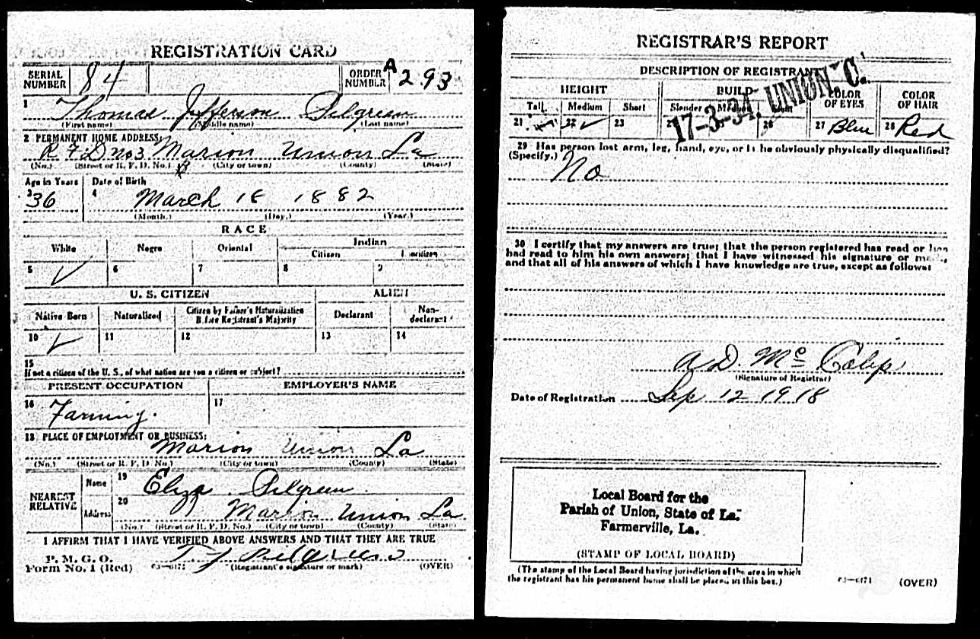 REGISTRATION CARD
SERIAL NUMBER 84 ORDER NUMBER A 293
1 Thomas Jefferson Pilgreen
(First name) (Middle name) (Last name)
2 PERMANENT HOME ADDRESS:
R F D No 3 Marion Union La
(No.) (Street or R. F. D. No.) (City or town) (County) (State)
Age in Years Date of Birth
3 36 4 March 18 1882
(Month.) (Day.) (Year.)
RACE
White Negro Oriental Indian
Citizen
5 ✓ 6 7 8 9
U. S. CITIZEN ALIEN
Native Born Naturalized Citizen by Father's Naturalization Before Registrant's Majority Declarant Non-declarant
10 ✓ 11 12 13 14
15
If not a citizen of the U. S., of what nation are you a citizen or subject?
PRESENT OCCUPATION EMPLOYER'S NAME
16 Farming. 17
18 PLACE OF EMPLOYMENT OR BUSINESS:
Marion Union La
(No.) (Street or R. F. D. No.) (City or town) (County) (State)
NEAREST RELATIVE
Name 19 Eliza Pilgreen
Address 20 Marion Union La
(No.) (Street or R. F. D. No.) (City or town) (County) (State)
I AFFIRM THAT I HAVE VERIFIED ABOVE ANSWERS AND THAT THEY ARE TRUE
P. M. G. O.
Form No. 1 (Red) T J Pilgreen
(Registrant's signature or mark) (OVER)
REGISTRAR'S REPORT
DESCRIPTION OF REGISTRANT
HEIGHT BUILD COLOR OF EYES COLOR OF HAIR
Tall Medium Short Slender Medium
21 22 ✓ 23 26 27 Blue 28 Red
17-3-34. UNION C. La.
29 Has person lost arm, leg, hand, eye, or is he obviously physically disqualified?
(Specify.) No
30 I certify that my answers are true; that the person registered has read or has
had read to him his own answers; that I have witnessed his signature or mark,
and that all of his answers of which I have knowledge are true, except as follows:
A D Mc
(Signature of Registrar)
Date of Registration Sep 12 1918
Local Board for the
Parish of Union, State of La.
Farmerville, La.
(STAMP OF LOCAL BOARD)
(The stamp of the Local Board having jurisdiction of the area in which
the registrant has his permanent home shall be placed in this box.)
03-6171 (OVER)